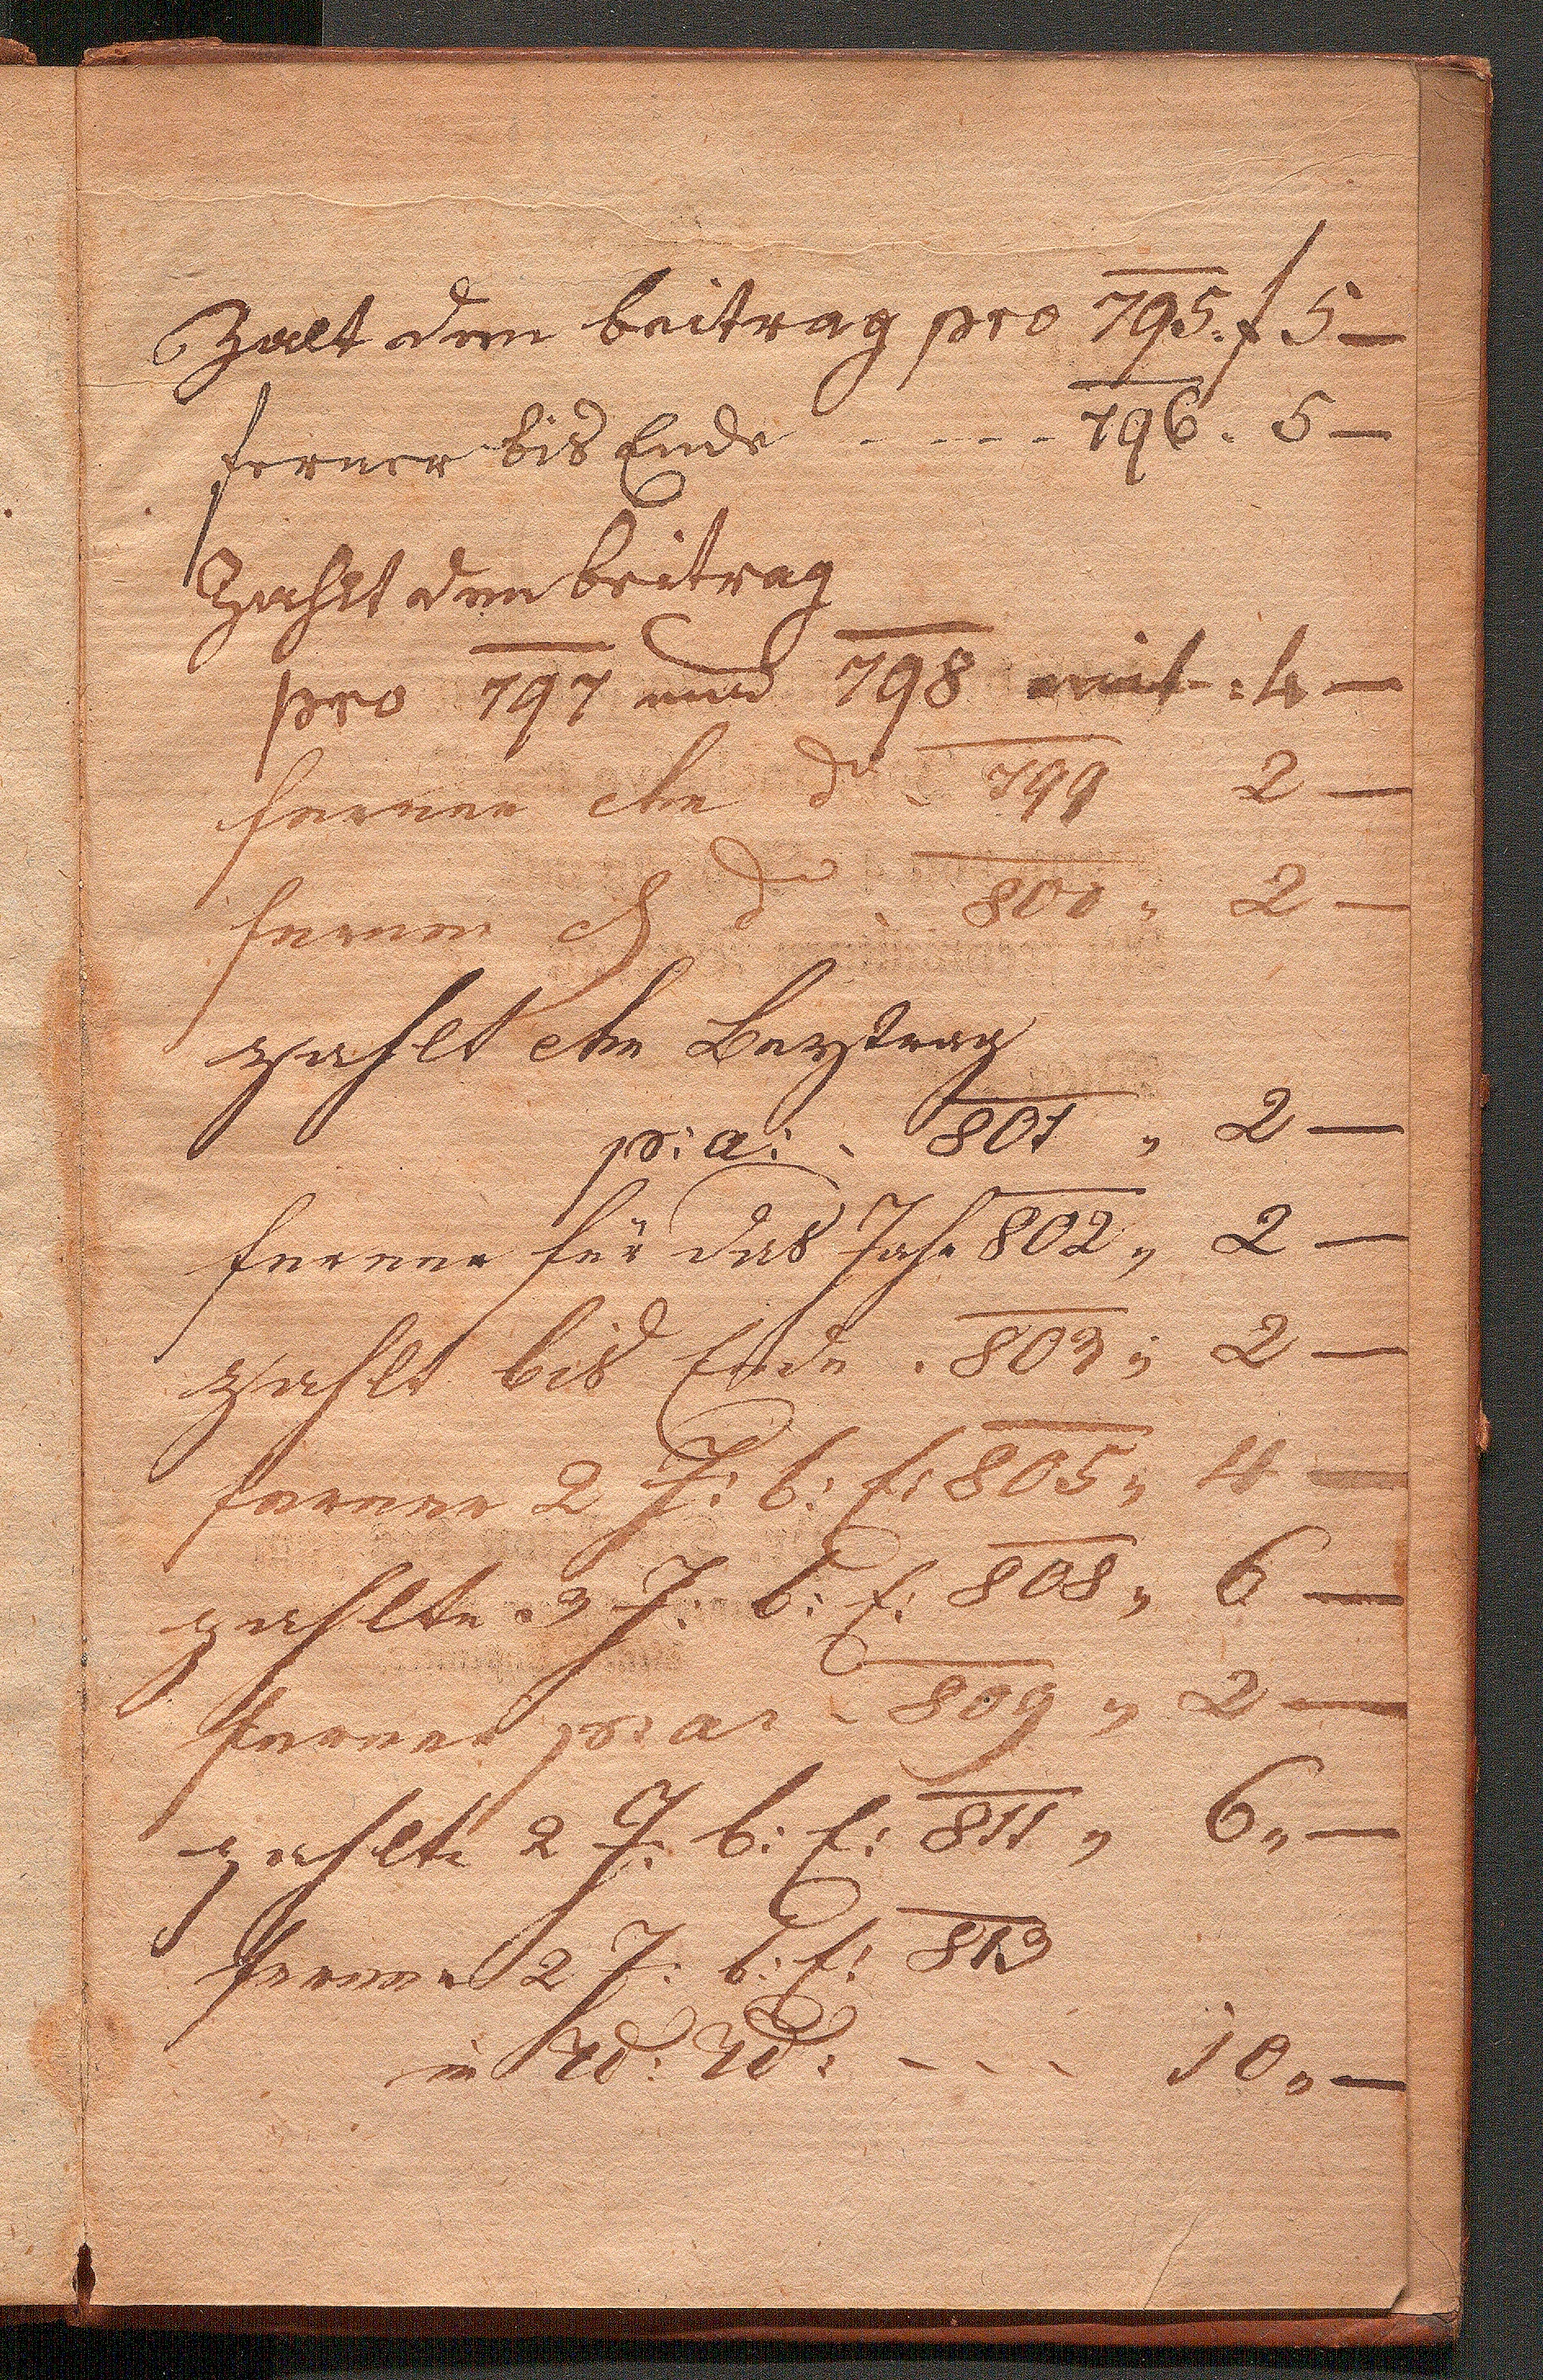 Zalt den beitrag pro 795. f 5 —
ferner bis Ende - - - - 796. 5 —
Zahlt den beitrag
pro 797 und 798 mit : 4 —
ferner den do - 799 2 —
ferner do - 800 „ 2 —
zahlt den Beytrag
p: a: - 801 „ 2 —
ferner für das Jahr 802 „ 2 —
zahlt bis Ende . 803 „ 2 —
ferner 2 J: b: E: 805 „ 4 —
zahlte 3 J: b: E: 808 „ 6 —
ferner p: a: - 809 „ 2 —
zahlte 2 J: b: E: 811 „ 6 „ —
ferner 2 J: b: E: 813
in - - - 10 „ —